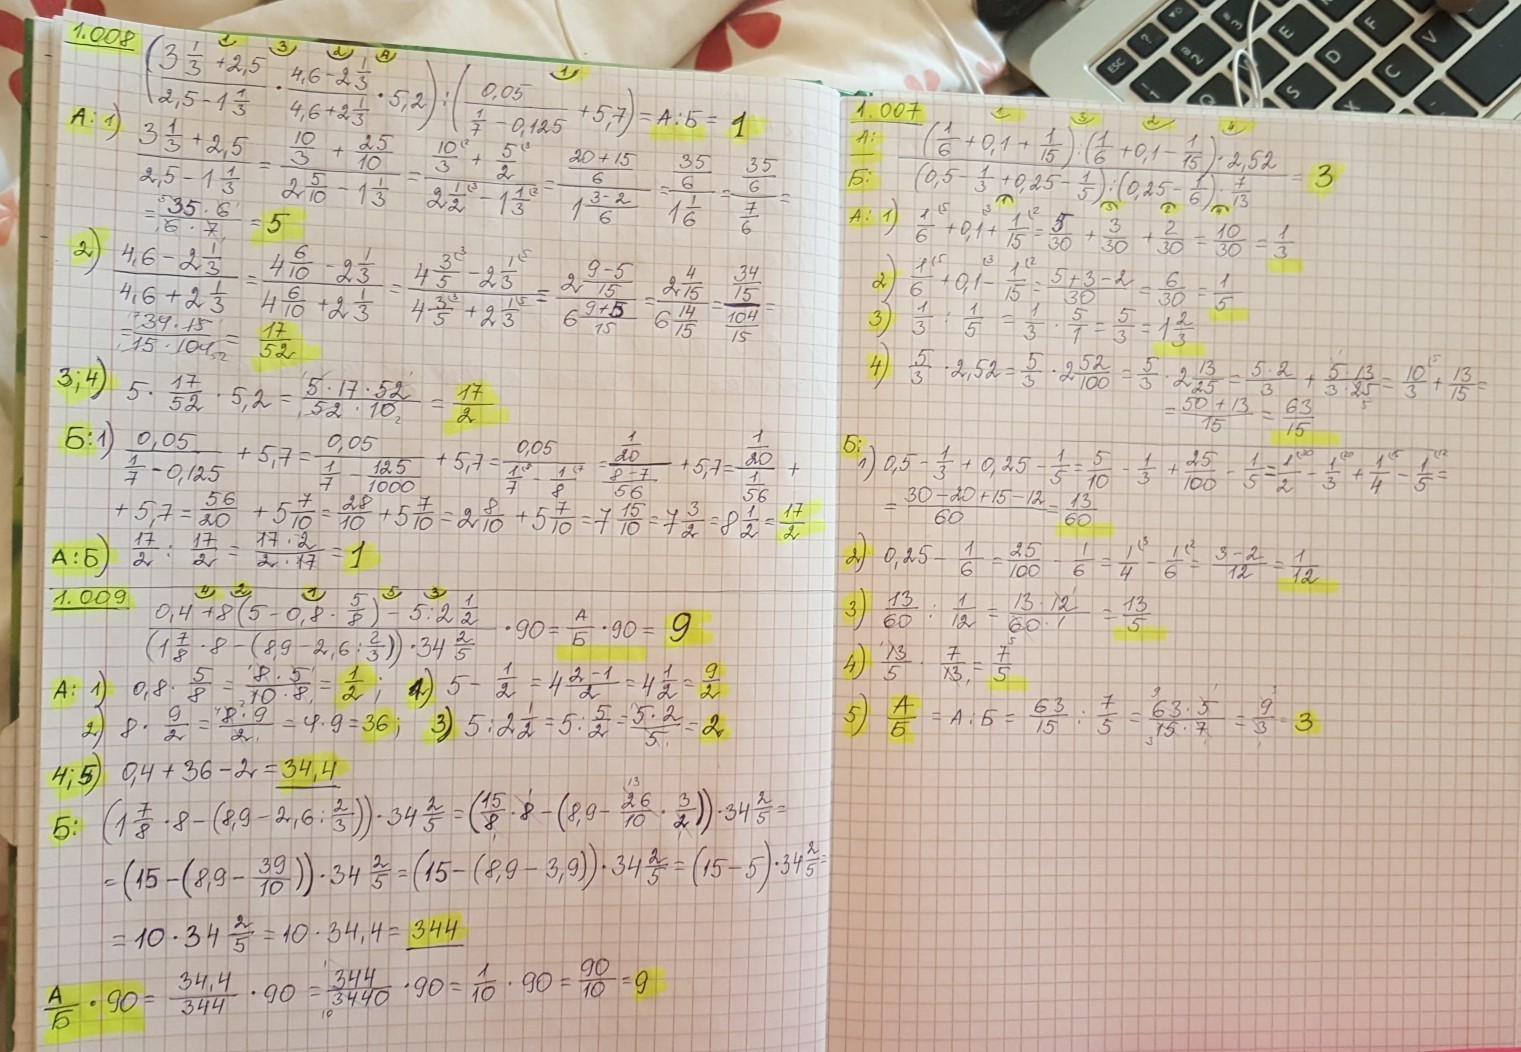 1.008 (3 1/3 + 2,5 / 2,5 - 1 1/3 · 4,6 - 2 1/3 / 4,6 + 2 1/3 · 5,2) : (0,05 / 1/7 - 0,125 + 5,7) = А:Б = 1
А: 1) 3 1/3 + 2,5 / 2,5 - 1 1/3 = 10/3 + 25/10 / 2 5/10 - 1 1/3 = 10/3 + 5/2 / 2 1/2 - 1 1/3 = 20+15/6 / 1 3-2/6 = 35/6 / 1 1/6 = 35/6 / 7/6 =
= 35·6 / 6·7 = 5
2) 4,6 - 2 1/3 / 4,6 + 2 1/3 = 4 6/10 - 2 1/3 / 4 6/10 + 2 1/3 = 4 3/5 - 2 1/3 / 4 3/5 + 2 1/3 = 2 9-5/15 / 6 9+5/15 = 2 4/15 / 6 14/15 = 34/15 / 104/15 =
= 34·15 / 15·104 = 17/52
3;4) 5 · 17/52 · 5,2 = 5·17·52 / 52·10 = 17/2
Б: 1) 0,05 / 1/7 - 0,125 + 5,7 = 0,05 / 1/7 - 125/1000 + 5,7 = 0,05 / 1/7 - 1/8 = 1/20 / 8-7/56 + 5,7 = 1/20 / 1/56 +
+ 5,7 = 56/20 + 5 7/10 = 28/10 + 5 7/10 = 2 8/10 + 5 7/10 = 7 15/10 = 7 3/2 = 8 1/2 = 17/2
А:Б) 17/2 : 17/2 = 17·2 / 2·17 = 1
1.009
0,4 + 8(5 - 0,8 · 5/8) - 5 : 2 1/2 / (1 7/8 · 8 - (8,9 - 2,6 : 2/3)) · 34 2/5 · 90 = А/Б · 90 = 9
А: 1) 0,8 · 5/8 = 8·5 / 10·8 = 1/2; 1) 5 - 1/2 = 4 2-1/2 = 4 1/2 = 9/2
2) 8 · 9/2 = 8·9/2 = 4·9 = 36; 3) 5 : 2 1/2 = 5 : 5/2 = 5·2/5 = 2
4;5) 0,4 + 36 - 2 = 34,4
Б: (1 7/8 · 8 - (8,9 - 2,6 : 2/3)) · 34 2/5 = (15/8 · 8 - (8,9 - 26/10 · 3/2)) · 34 2/5 =
= (15 - (8,9 - 39/10)) · 34 2/5 = (15 - (8,9 - 3,9)) · 34 2/5 = (15 - 5) · 34 2/5 =
= 10 · 34 2/5 = 10 · 34,4 = 344
А/Б · 90 = 34,4/344 · 90 = 344/3440 · 90 = 1/10 · 90 = 90/10 = 9
1.007
А: (1/6 + 0,1 + 1/15) : (1/6 + 0,1 - 1/15) · 2,52
Б: (0,5 - 1/3 + 0,25 - 1/5) : (0,25 - 1/6) · 7/13 = 3
А: 1) 1/6 + 0,1 + 1/15 = 5/30 + 3/30 + 2/30 = 10/30 = 1/3
2) 1/6 + 0,1 - 1/15 = 5+3-2/30 = 6/30 = 1/5
3) 1/3 : 1/5 = 1/3 · 5/1 = 5/3 = 1 2/3
4) 5/3 · 2,52 = 5/3 · 2 52/100 = 5/3 · 2 13/25 = 5·2/3 + 5·13/3·25 = 10/3 + 13/15 =
= 50+13/15 = 63/15
Б:
1) 0,5 - 1/3 + 0,25 - 1/5 = 5/10 - 1/3 + 25/100 - 1/5 = 1/2 - 1/3 + 1/4 - 1/5 =
= 30-20+15-12/60 = 13/60
2) 0,25 - 1/6 = 25/100 - 1/6 = 1/4 - 1/6 = 3-2/12 = 1/12
3) 13/60 : 1/12 = 13·12/60·1 = 13/5
4) 13/5 · 7/13 = 7/5
5) А/Б = А:Б = 63/15 : 7/5 = 63·5/15·7 = 9/3 = 3
ESC
E
D
F
S
C
V
X